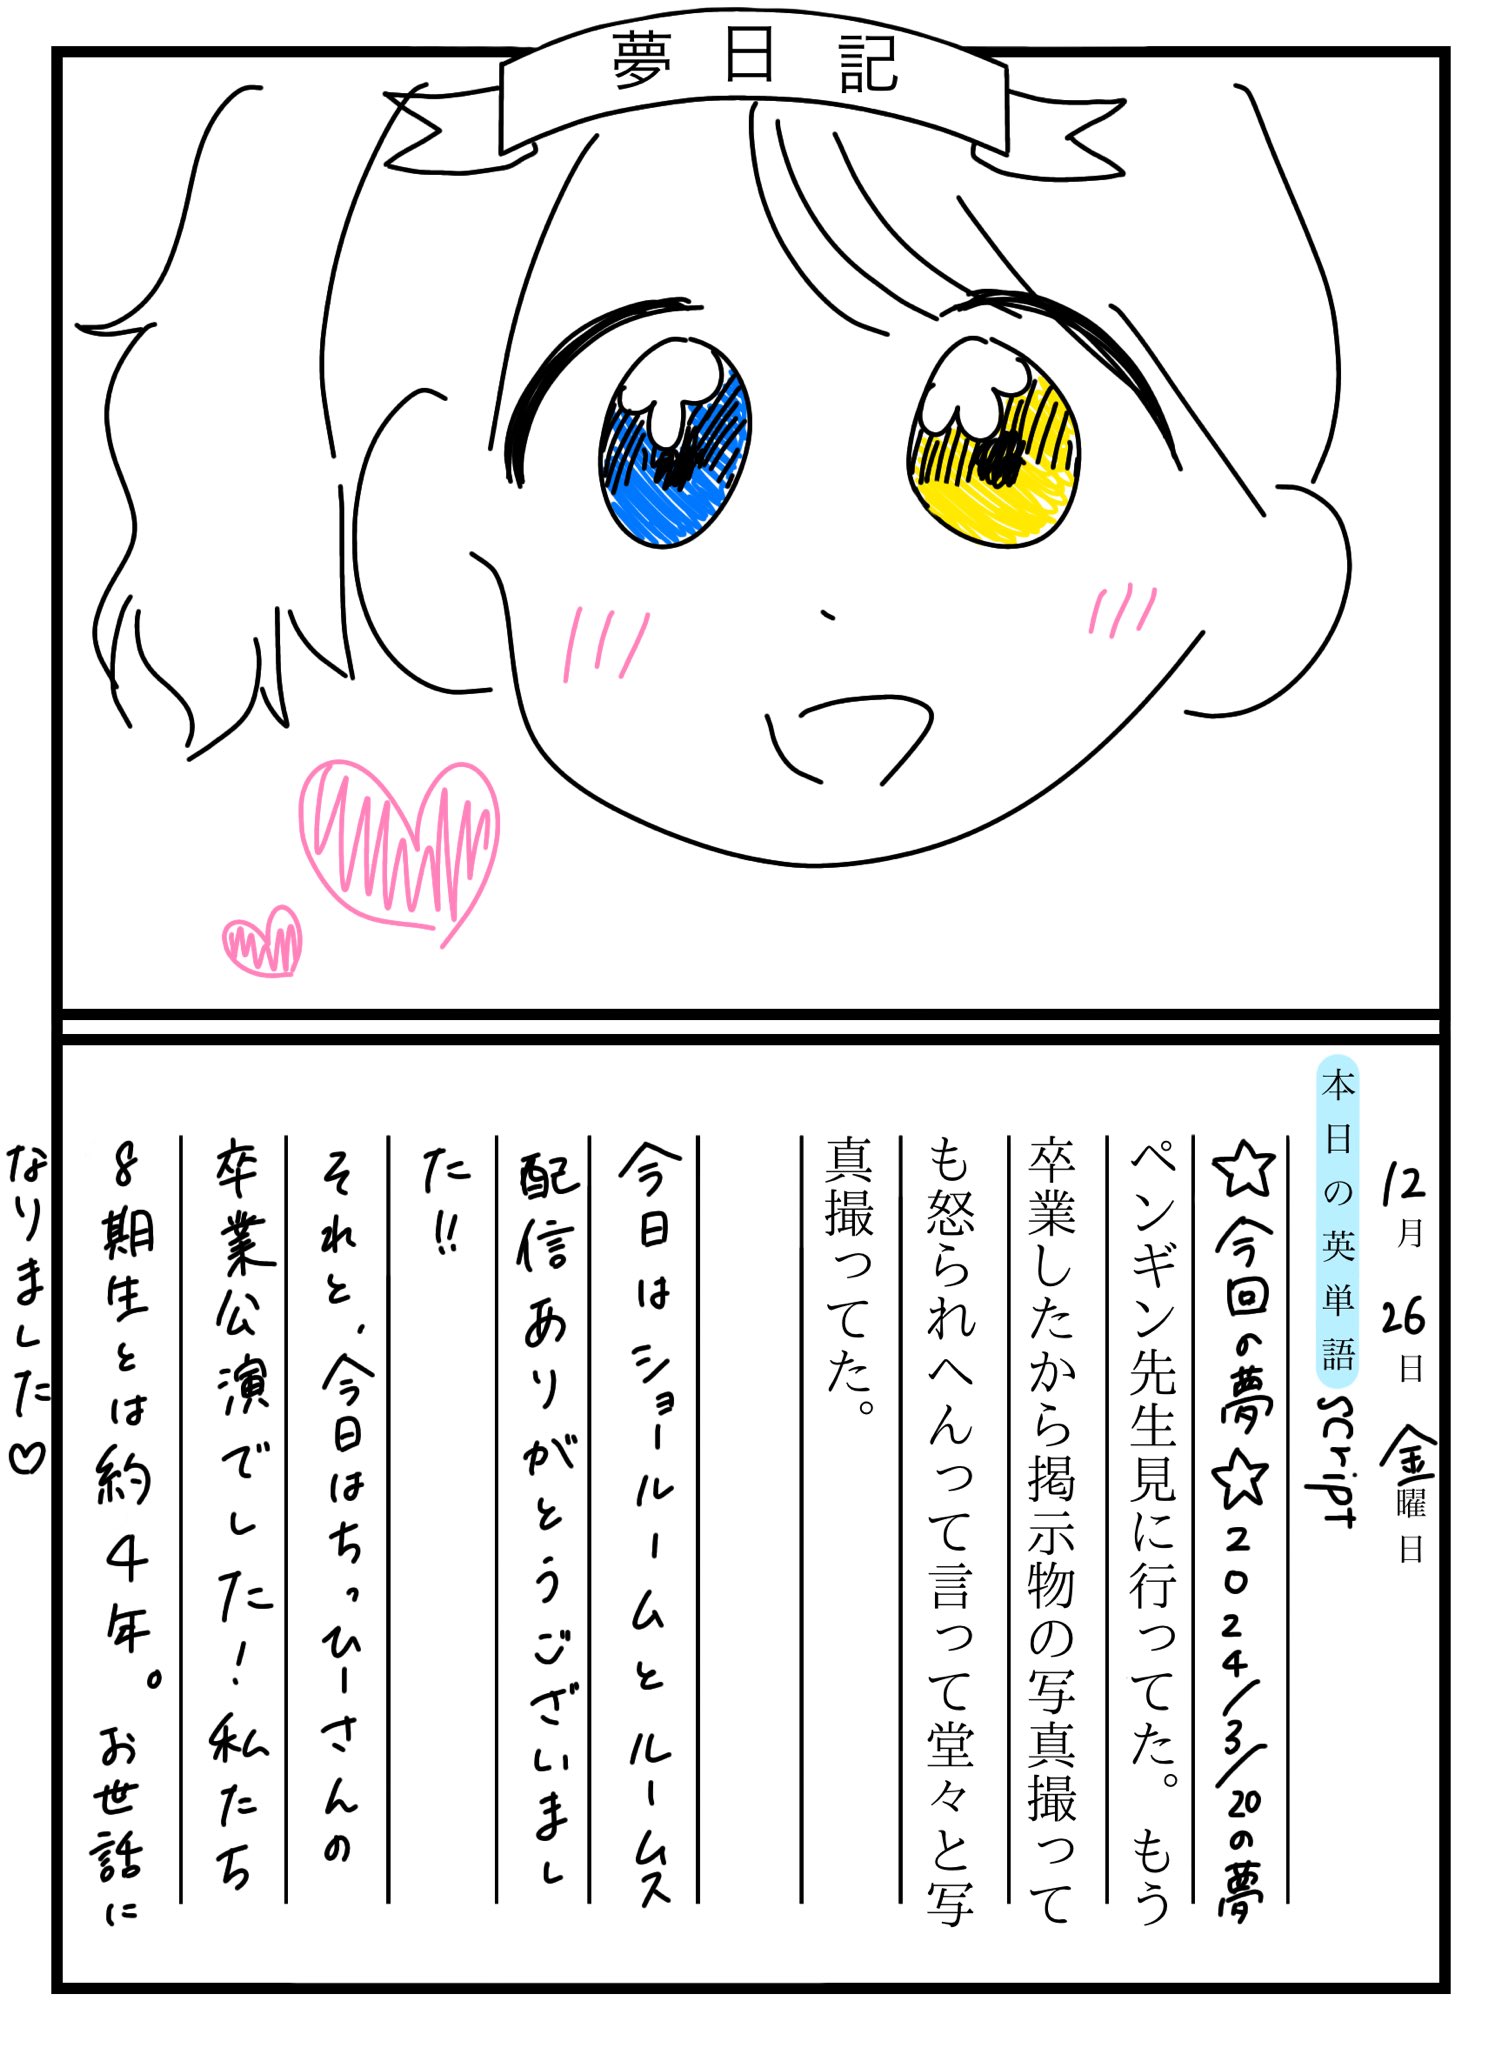 夢日記
12月26日金曜日
本日の英単語 script
☆今回の夢☆2024/3/20の夢
ペンギン先生見に行ってた。もう
卒業したから掲示物の写真撮って
も怒られへんって言って堂々と写
真撮ってた。
今日はショールームとルームス
配信ありがとうございまし
た!!
それと、今日はちっひーさんの
卒業公演でした!私たち
8期生とは約4年。お世話に
なりました♡